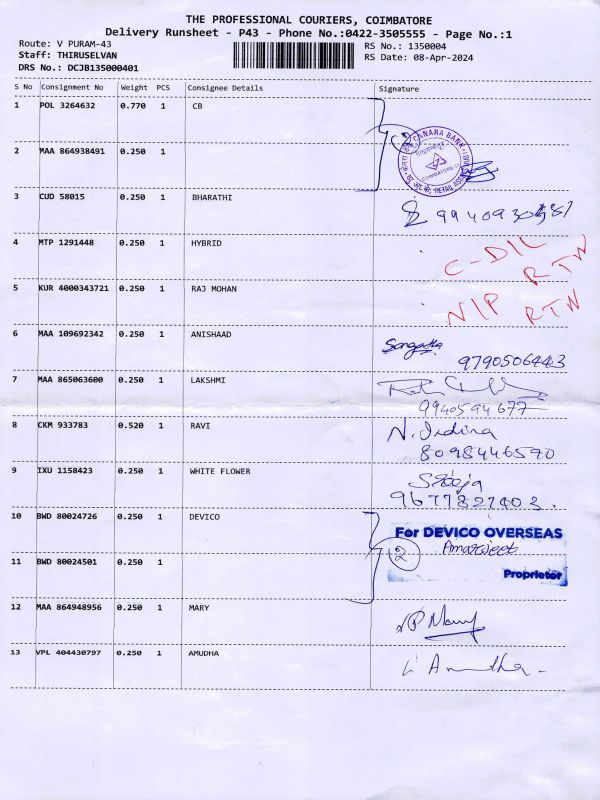 THE PROFESSIONAL COURIERS, COIMBATORE
Delivery Runsheet - P43 - Phone No.:0422-3505555 - Page No.:1
Route: V PURAM-43
RS No.: 1350004
Staff: THIRUSELVAN
RS Date: 08-Apr-2024
DRS No.: DCJB135000401
S No Consignment No Weight PCS Consignee Details Signature
1 POL 3264632 0.770 1 CB
2 MAA 864938491 0.250 1
CANARA BANK
COIMBATORE
3 CUD 58015 0.250 1 BHARATHI
4 MTP 1291448 0.250 1 HYBRID C-DIL RTN
5 KUR 4000343721 0.250 1 RAJ MOHAN N/P RTN
6 MAA 109692342 0.250 1 ANISHAAD
9790506443
7 MAA 865063600 0.250 1 LAKSHMI
9940594677
8 CKM 933783 0.520 1 RAVI N. Indira
8098446570
9 IXU 1158423 0.250 1 WHITE FLOWER
9677827403.
10 BWD 80024726 0.250 1 DEVICO For DEVICO OVERSEAS
2
11 BWD 80024501 0.250 1 Proprietor
12 MAA 864948956 0.250 1 MARY
13 VPL 404430797 0.250 1 AMUDHA Amudha